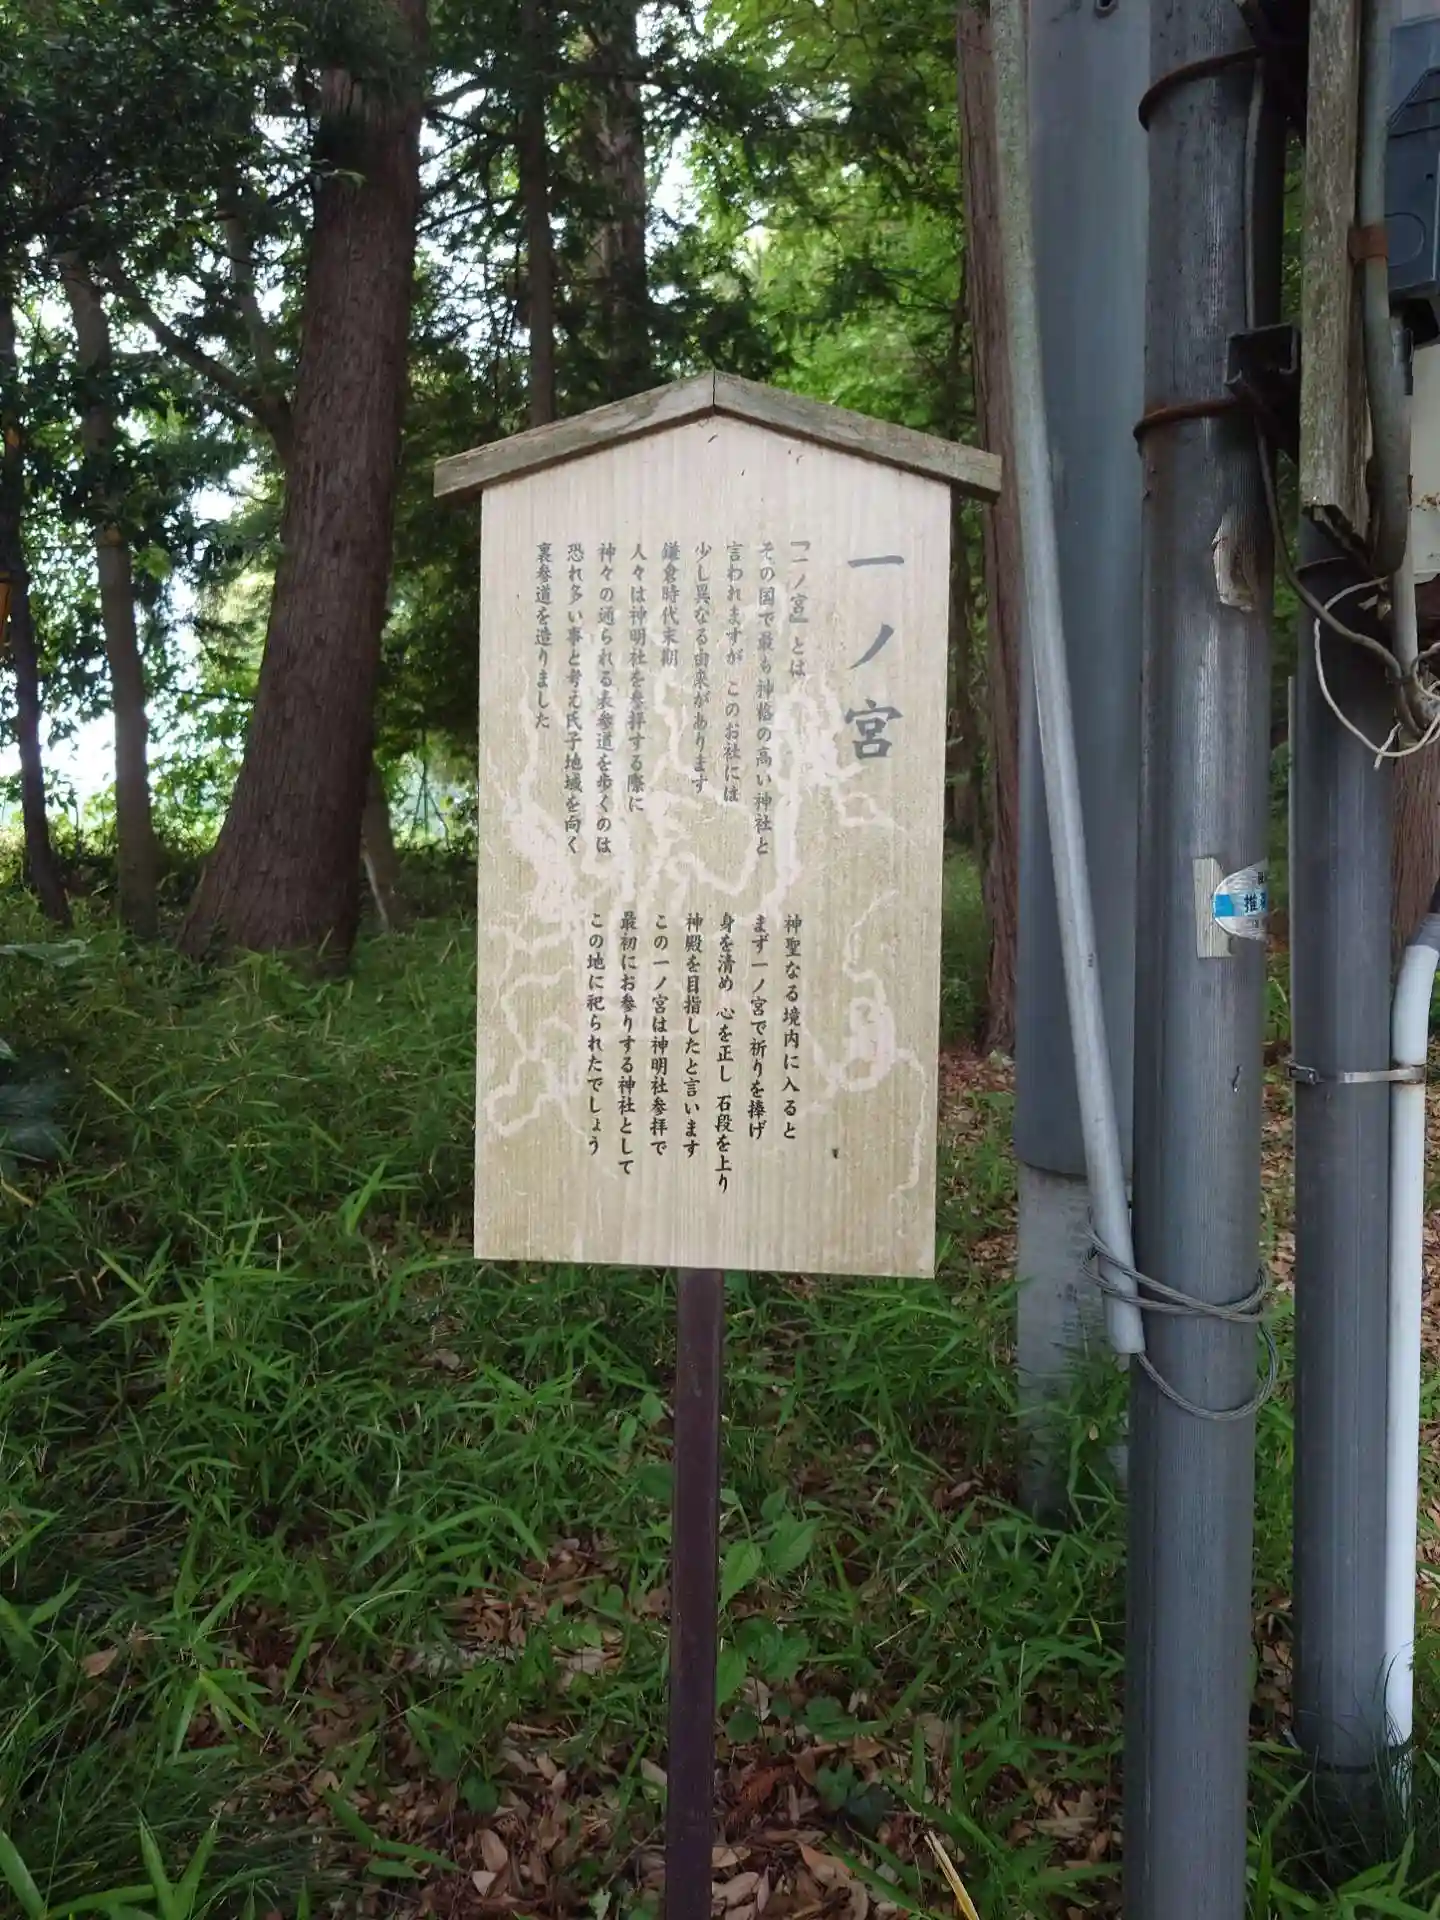 一ノ宮
『一ノ宮』とは
その国で最も神格の高い神社と
言われますが このお社には
少し異なる由来があります
鎌倉時代末期
人々は神明社を参拝する際に
神々の通られる表参道を歩くのは
恐れ多い事と考え氏子地域を向く
裏参道を造りました
神聖なる境内に入ると
まず一ノ宮で祈りを捧げ
身を清め 心を正し 石段を上り
神殿を目指したと言います
この一ノ宮は神明社参拝で
最初にお参りする神社として
この地に祀られたでしょう
推